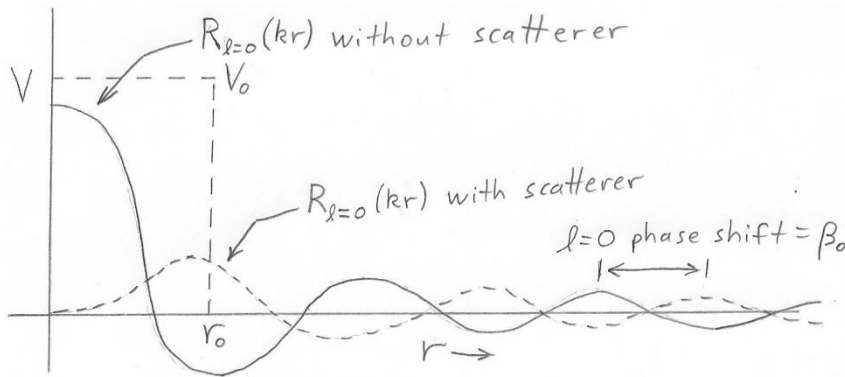 R_{ℓ=0}(kr) without scatterer
V
V₀
R_{ℓ=0}(kr) with scatterer
ℓ=0 phase shift = β₀
r₀
r →